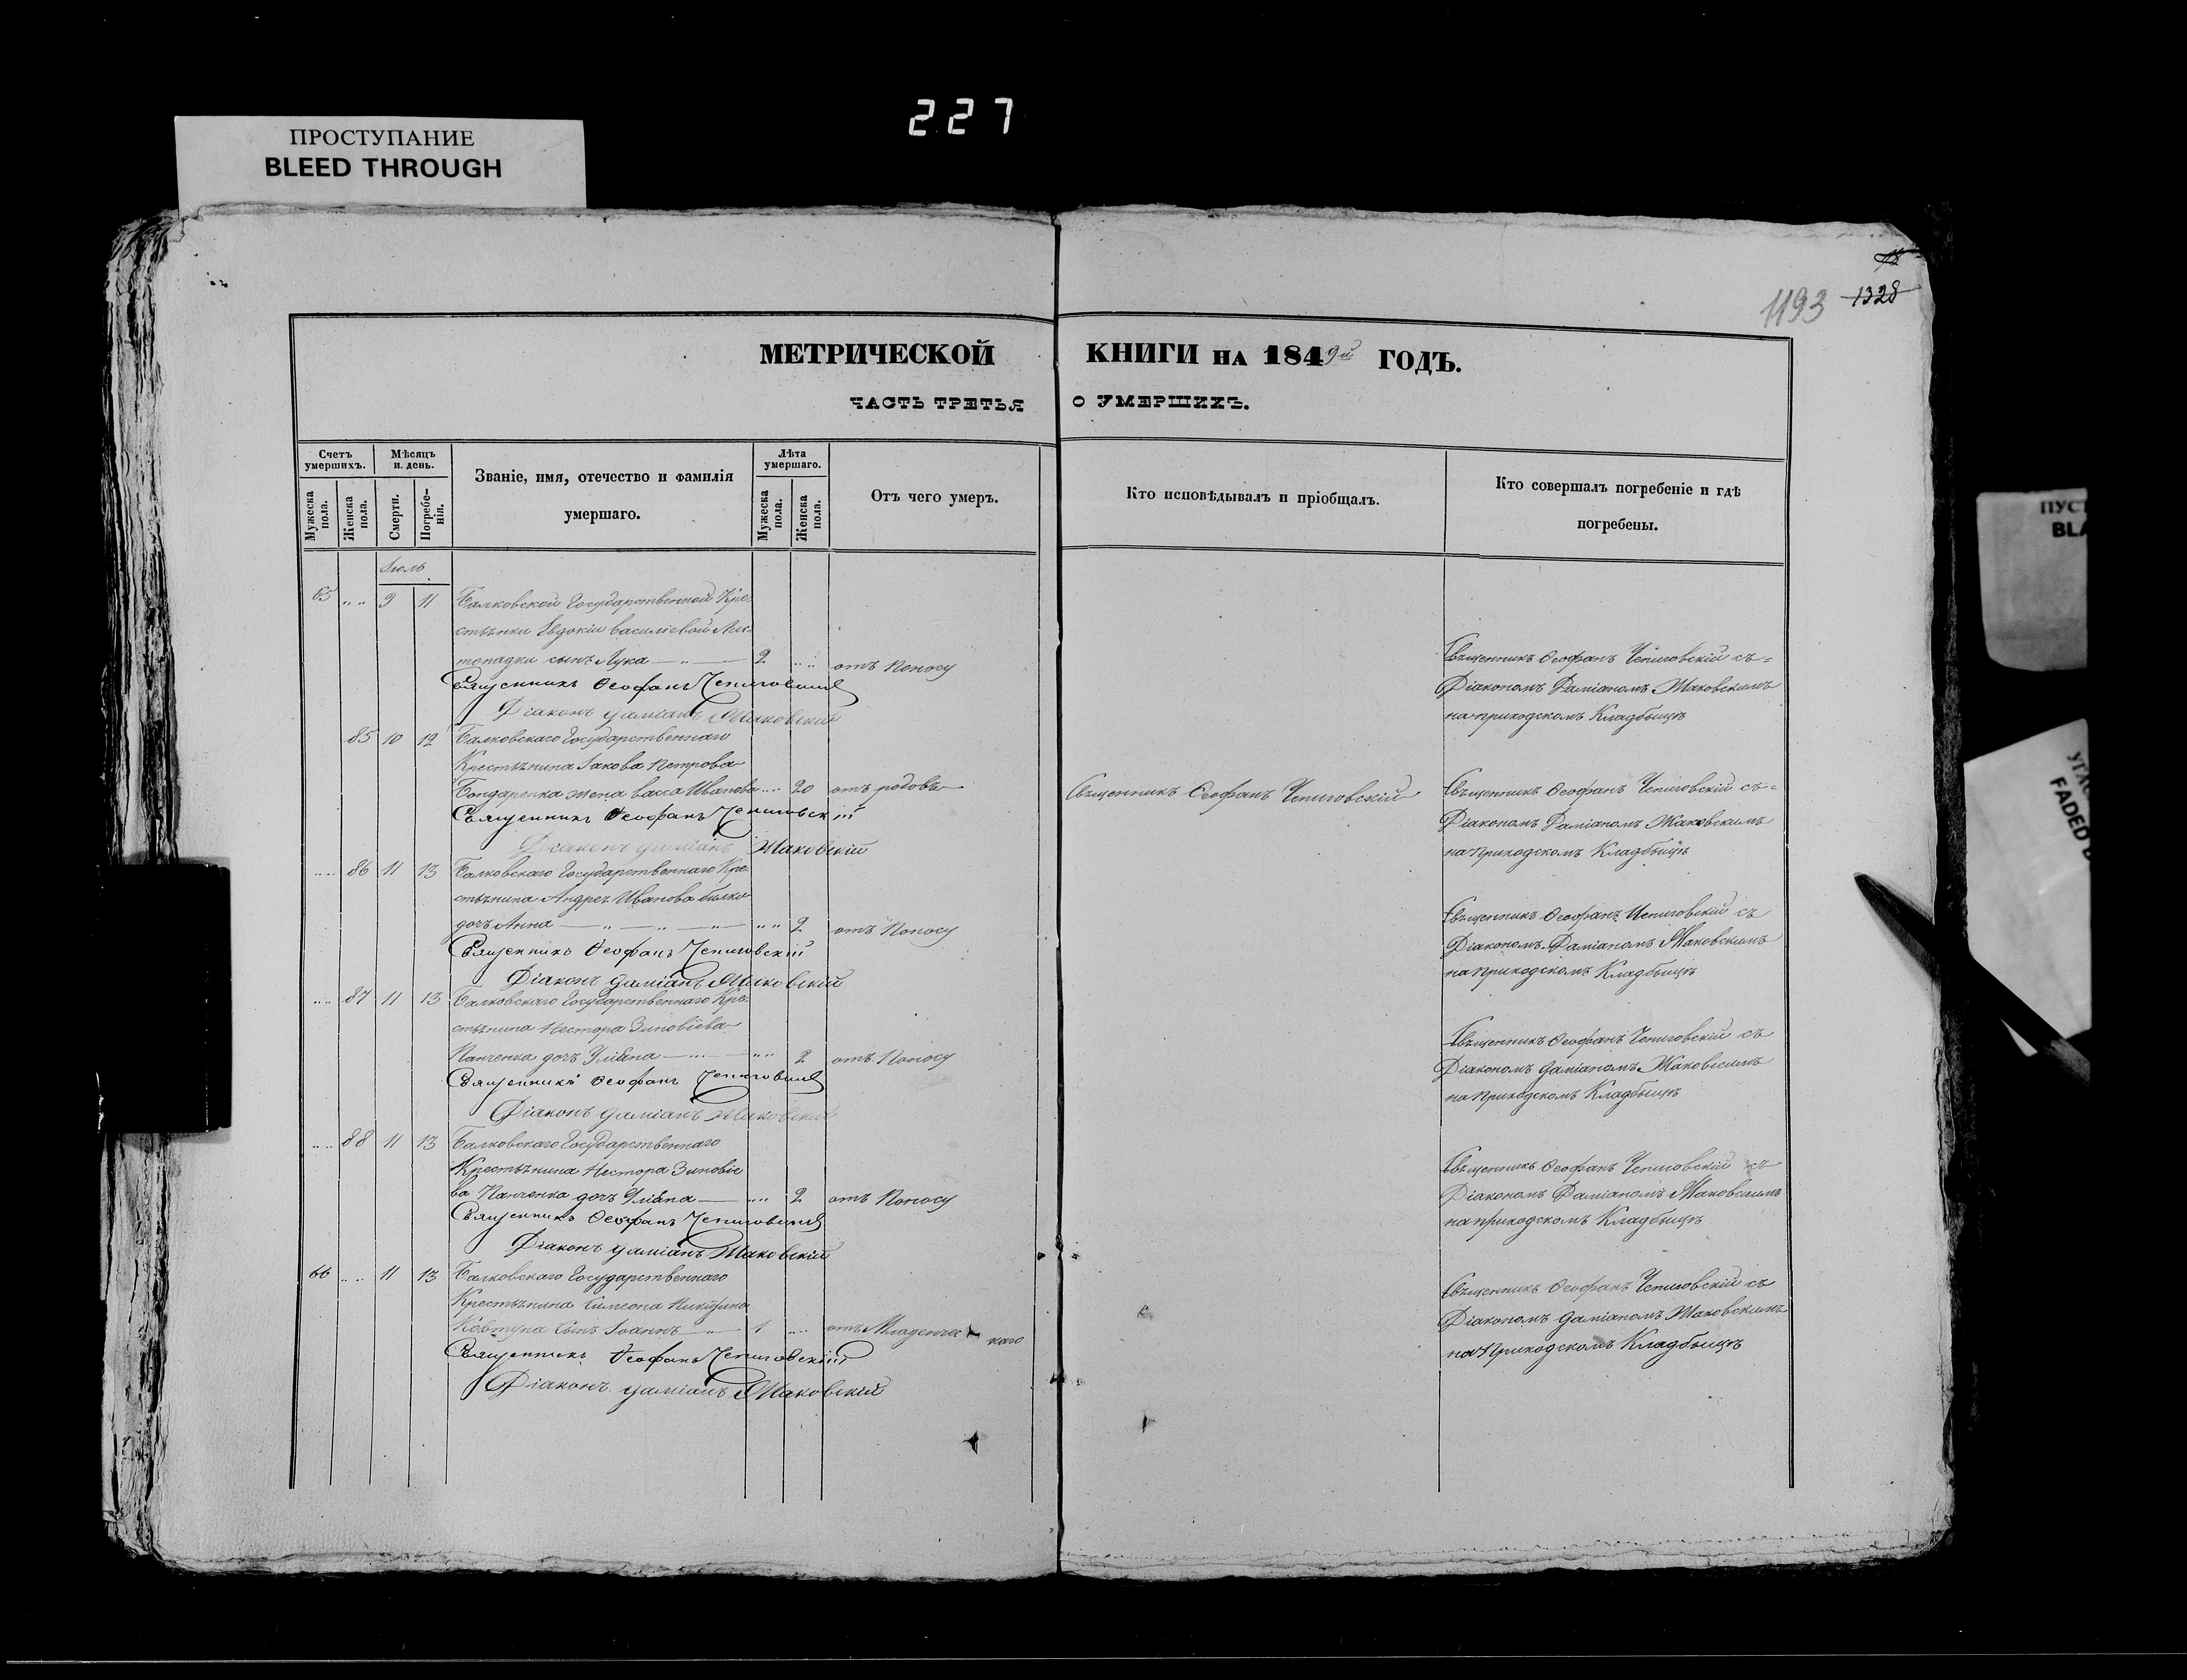 227
ПРОСТУПАНИЕ
BLEED THROUGH
1193 1328
МЕТРИЧЕСКОЙ КНИГИ НА 1849й ГОДЪ.
ЧАСТЬ ТРЕТЬЯ О УМЕРШИХЪ.
Счетъ умершихъ.
Мужеска пола.
Женска пола.
Мѣсяцъ и день.
Смерти.
Погребе-нія.
Званіе, имя, отечество и фамилія умершаго.
Лѣта умершаго.
Мужеска пола.
Женска пола.
Отъ чего умеръ.
Кто исповѣдывалъ и пріобщалъ.
Кто совершалъ погребеніе и гдѣ погребены.
Іюль
65 „ „ 9 11 Балковской Государственной Кре
стьянки Евдокіи Василіевой
сынъ Лука — „ — 2 „ „ отъ Поносу
Священникъ Ѳеофанъ Чепиговскій
Діаконъ Даміанъ Маковскій
Свѣщенникъ Ѳеофанъ Чепиговскій съ=
Діакономъ Даміаномъ Маковскимъ
на приходскомъ Кладбищѣ
85 10 12 Балковскаго Государственнаго
Крестьянина Іакова Петрова
Бондаренка жена Васса Иванова „ „ 20 отъ родовъ
Священникъ Ѳеофанъ Чепиговскій
Діаконъ Даміанъ Маковскій
Свѣщенникъ Ѳеофанъ Чепиговскій
Свѣщенникъ Ѳеофанъ Чепиговскій съ=
Діакономъ Даміаномъ Маковскимъ
на приходскомъ Кладбищѣ
„ „ 86 11 13 Балковскаго Государственнаго Кре
стьянина Андрея Иванова
дочь Анна — „ — „ — „ — „ „ 2 отъ Поносу
Священникъ Ѳеофанъ Чепиговскій
Діаконъ Даміанъ Маковскій
Свѣщенникъ Ѳеофанъ Чепиговскій съ
Діакономъ Даміаномъ Маковскимъ
на приходскомъ Кладбищѣ
„ „ 87 11 13 Балковскаго Государственнаго Кре
стьянина Нестора Зиновіева
Панченка дочь Уліана — „ — „ „ 2 отъ Поносу
Священникъ Ѳеофанъ Чепиговскій
Діаконъ Даміанъ Маковскій
Свѣщенникъ Ѳеофанъ Чепиговскій съ
Діакономъ Даміаномъ Маковскимъ
на приходскомъ Кладбищѣ
„ „ 88 11 13 Балковскаго Государственнаго
Крестьянина Нестора Зиновіе
ва Панченка дочь Уліана — „ „ 2 отъ Поносу
Священникъ Ѳеофанъ Чепиговскій
Діаконъ Даміанъ Маковскій
Свѣщенникъ Ѳеофанъ Чепиговскій съ
Діакономъ Даміаномъ Маковскимъ
на приходскомъ Кладбищѣ
66 „ „ 11 13 Балковскаго Государственнаго
Крестьянина Симеона Никитина
Ковтуна сынъ Іоаннъ — „ — 1 „ „ отъ Младенческаго
Священникъ Ѳеофанъ Чепиговскій
Діаконъ Даміанъ Маковскій
Свѣщенникъ Ѳеофанъ Чепиговскій съ
Діакономъ Даміаномъ Маковскимъ
на Приходскомъ Кладбищѣ
FADED